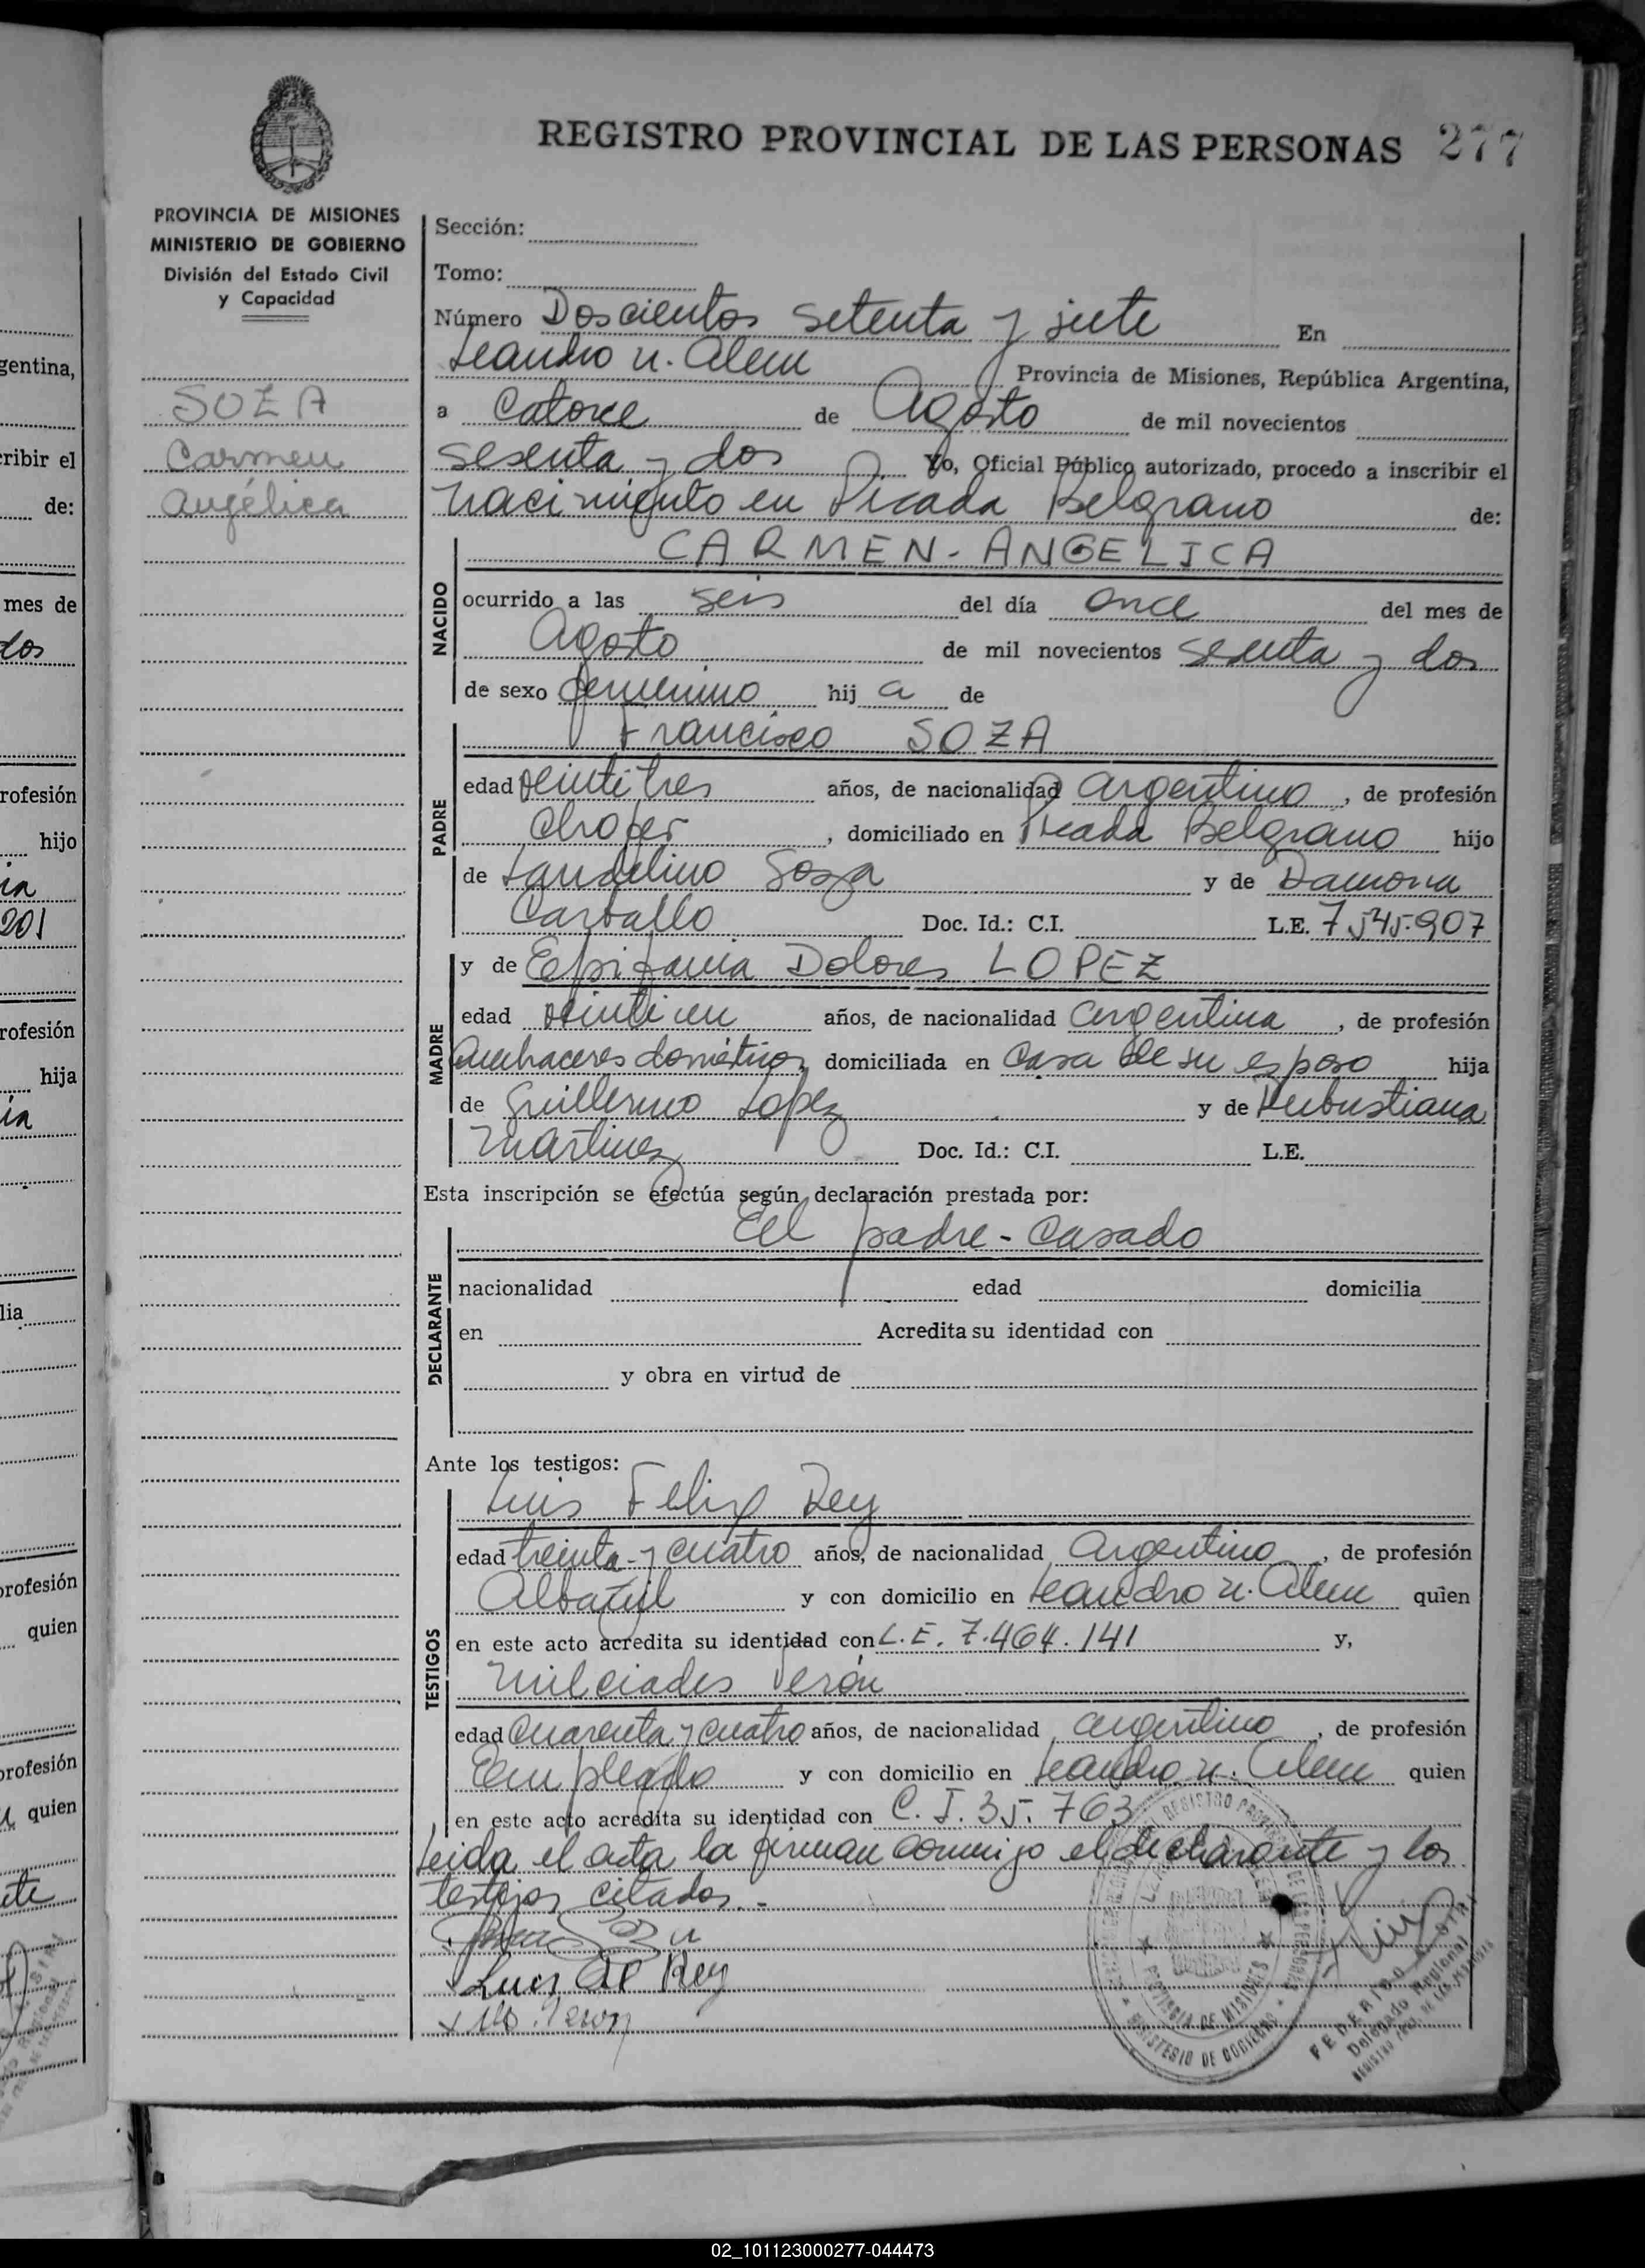 REGISTRO PROVINCIAL DE LAS PERSONAS 277
PROVINCIA DE MISIONES
MINISTERIO DE GOBIERNO
División del Estado Civil
y Capacidad
SOZA
Carmen
Angélica
Sección:
Tomo:
Número Doscientos setenta y siete En
Leandro N. Alem Provincia de Misiones, República Argentina,
a Catorce de Agosto de mil novecientos
sesenta y dos Yo, Oficial Público autorizado, procedo a inscribir el
nacimiento en Picada Belgrano de:
CARMEN-ANGELICA
NACIDO
ocurrido a las seis del día once del mes de
Agosto de mil novecientos sesenta y dos
de sexo femenino hij a de
Francisco SOZA
PADRE
edad veintitres años, de nacionalidad argentino, de profesión
Chofer, domiciliado en Picada Belgrano hijo
de Landelino Soza y de Damona
Carballo Doc. Id.: C.I. L.E. 7.545.907
MADRE
y de Epifania Dolores LOPEZ
edad veintiun años, de nacionalidad argentina, de profesión
Quehaceres domésticos, domiciliada en Casa de su esposo hija
de Guillermo Lopez y de
Martinez Doc. Id.: C.I. L.E.
Esta inscripción se efectúa según declaración prestada por:
El padre - Casado
DECLARANTE
nacionalidad edad domicilia
en Acredita su identidad con
y obra en virtud de
Ante los testigos:
TESTIGOS
Luis Felix Rey
edad treinta y cuatro años, de nacionalidad Argentino, de profesión
Albañil y con domicilio en Leandro N. Alem quien
en este acto acredita su identidad con L.E. 7.464.141 y,
Milciades Verón
edad Cuarenta y cuatro años, de nacionalidad argentino, de profesión
Empleado y con domicilio en Leandro N. Alem quien
en este acto acredita su identidad con C.I. 35.763
Leida el acta la firman conmigo el declarante y los
testigos citados.-
Luis F Rey
PROVINCIA DE MISIONES
MINISTERIO DE GOBIERNO
FEDERICO
Delegado Regional
gentina,
cribir el
de:
mes de
dos
rofesión
hijo
ia
201
rofesión
hija
ia
lia
profesión
quien
profesión
quien
ete
02_101123000277-044473